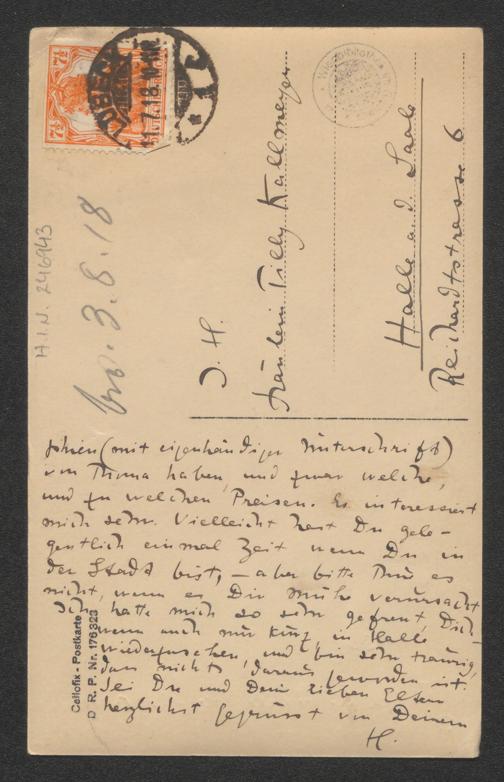 7½
7½
LÜBEN
11.7.18.10-11V.
J. H.
Fräulein Tilly Kallmeyer
Halle a. d. Saale
Reichardtstrasse 6
3.8.18
H.I.N. 246943
Cellofix - Postkarte
D. R. P. Nr. 176323
phien (mit eigenhändiger Unterschrift)
von Thoma haben, und zwar welche,
und zu welchen Preisen. Es interessiert
mich sehr. Vielleicht hast Du gele-
gentlich einmal Zeit wenn Du in
der Stadt bist, – aber bitte thue es
nicht, wenn es Dir Mühe verursacht
Ich hatte mich so sehr gefreut, Dich
wenn auch nur kurz, in Halle
wiederzusehen, und bin sehr traurig,
dass nichts daraus geworden ist.
Sei Du und Deine lieben Eltern
herzlichst gegrüsst von Deinem
H.